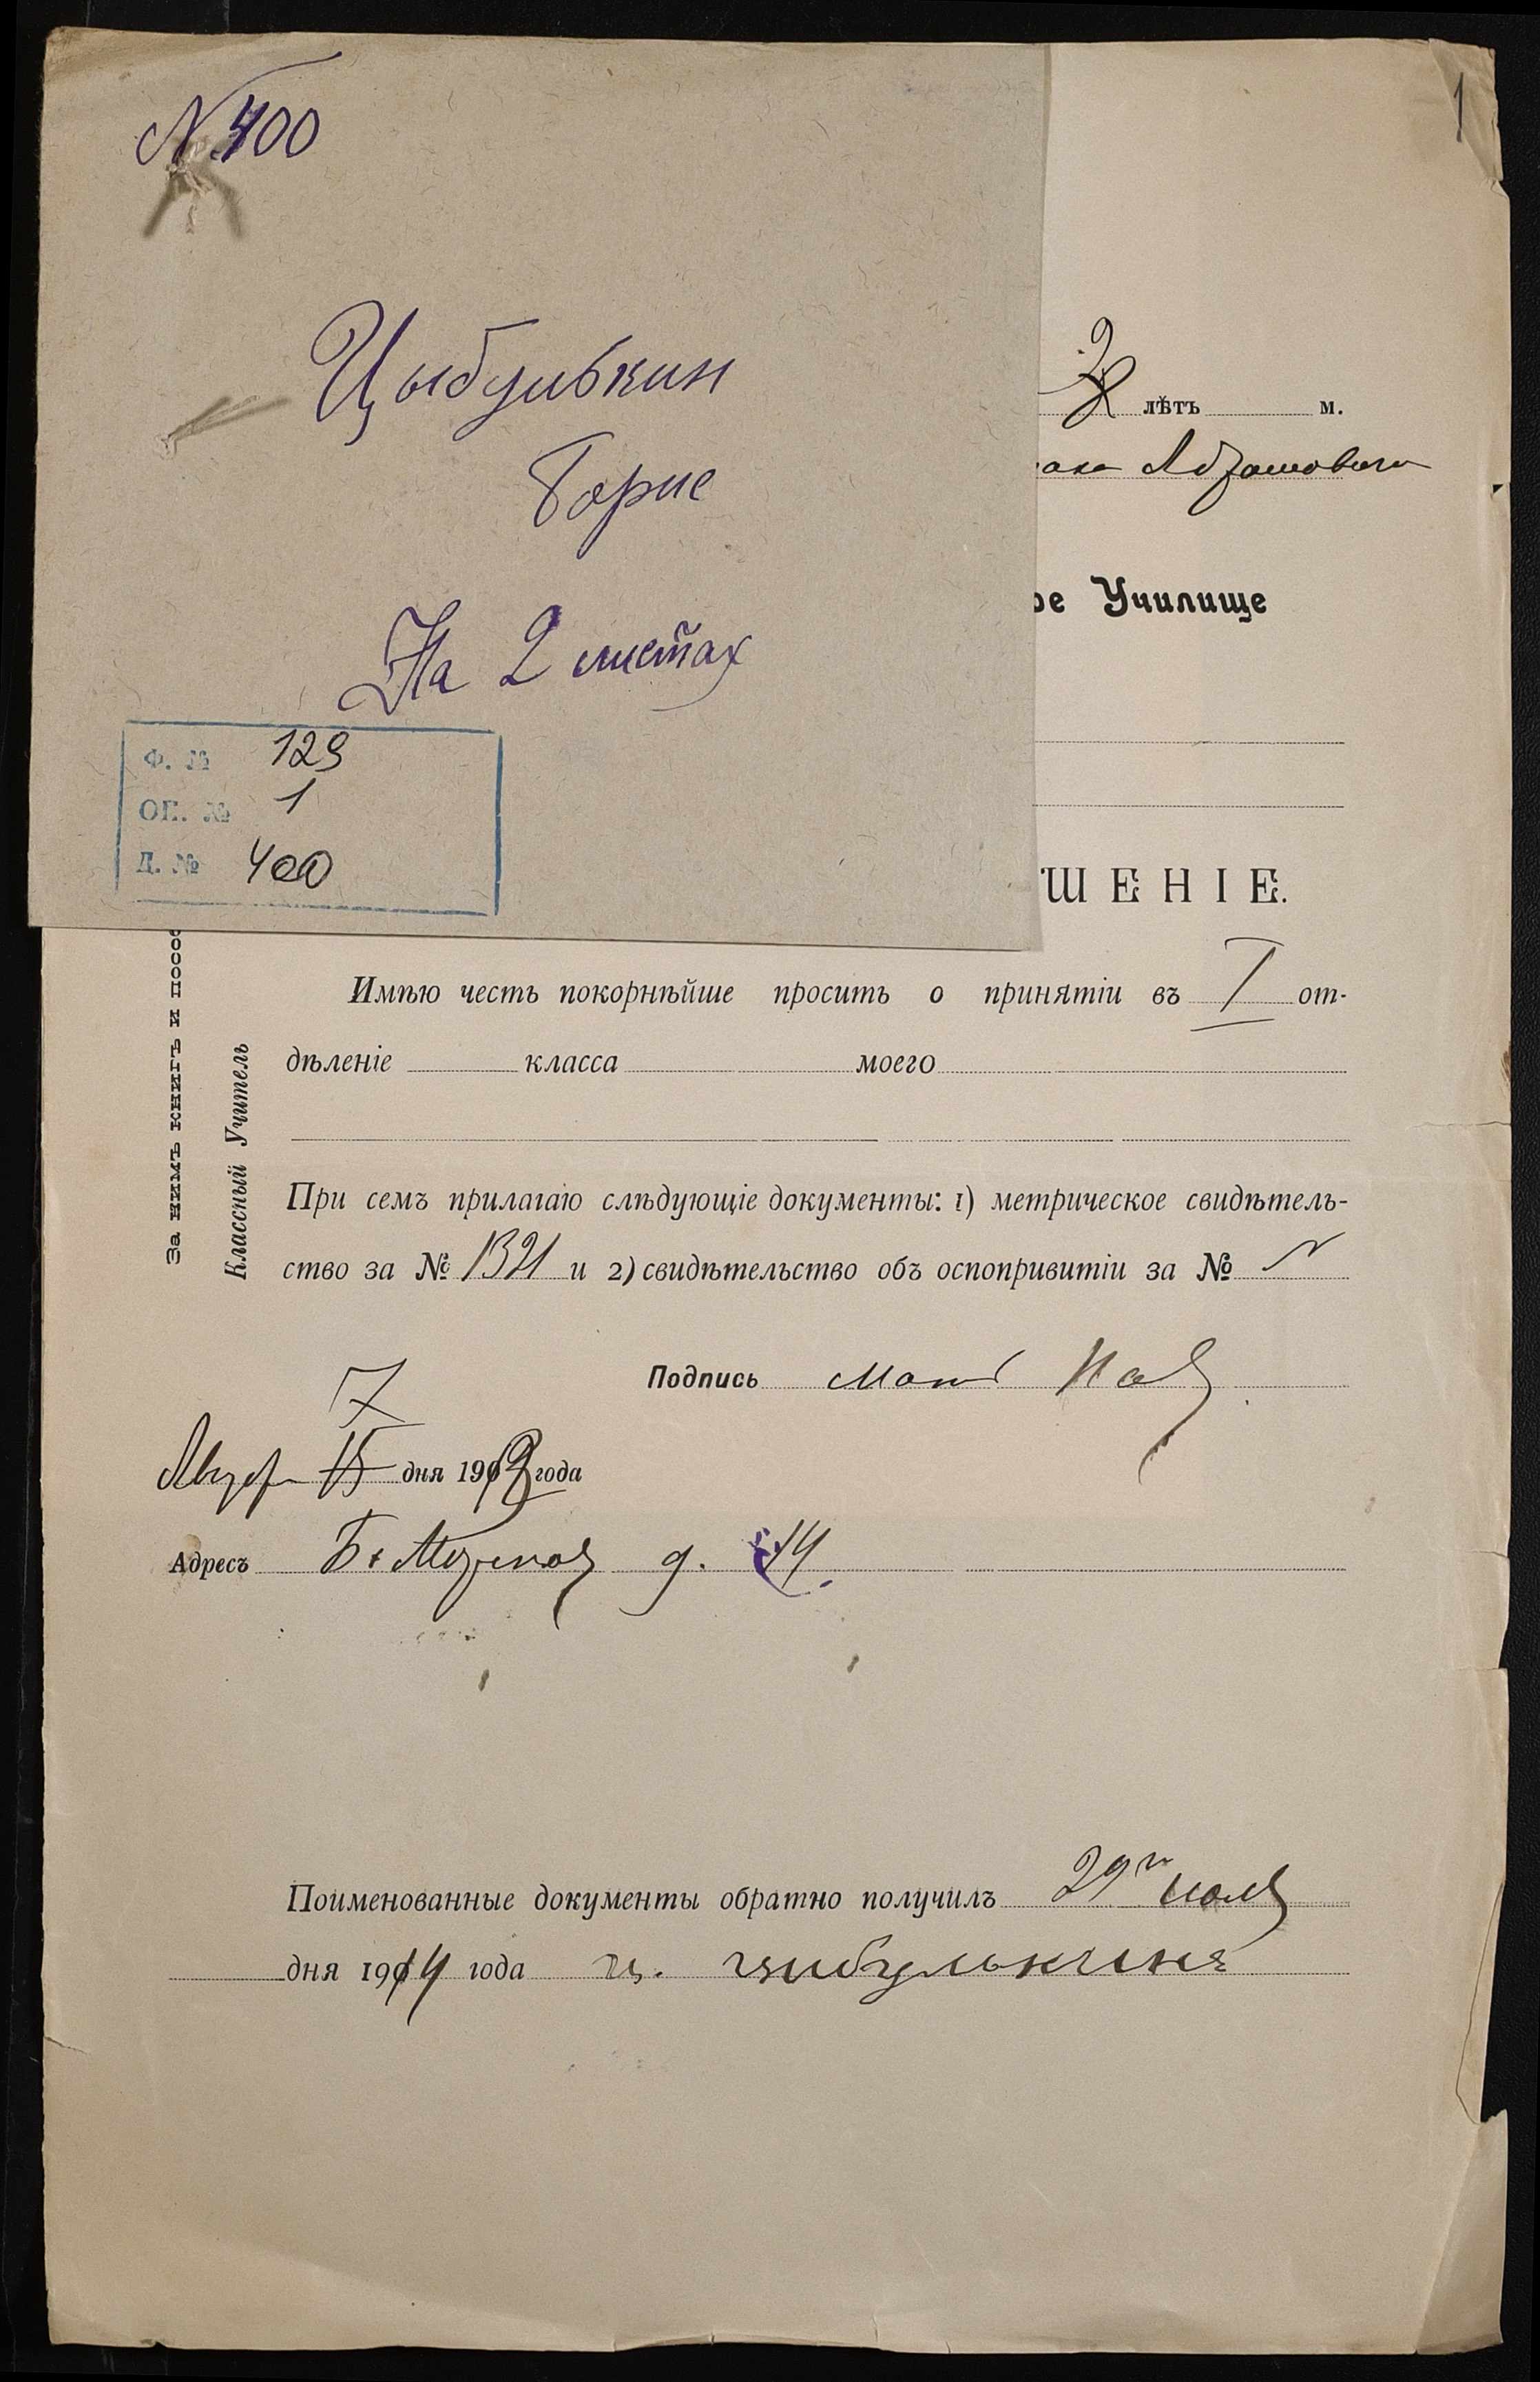 № 400
1
Цыбулькин
Борис
На 2 листах
Ф. № 129
ОП. № 1
Д. № 400
лѣтъ м.
Абрамовича
ое Училище
ШЕНІЕ.
За нимъ книгъ и пособ
Классный Учитель
Имѣю честь покорнѣйше просить о принятіи въ I от-
дѣленіе класса моего
При семъ прилагаю слѣдующіе документы: 1) метрическое свидѣтель-
ство за № 1321 и 2) свидѣтельство объ оспопривитіи за №
Подпись
7
15 дня 191 года
Адресъ д. 14
Поименованные документы обратно получилъ 29го июля
дня 1914 года ц. цибулькинъ